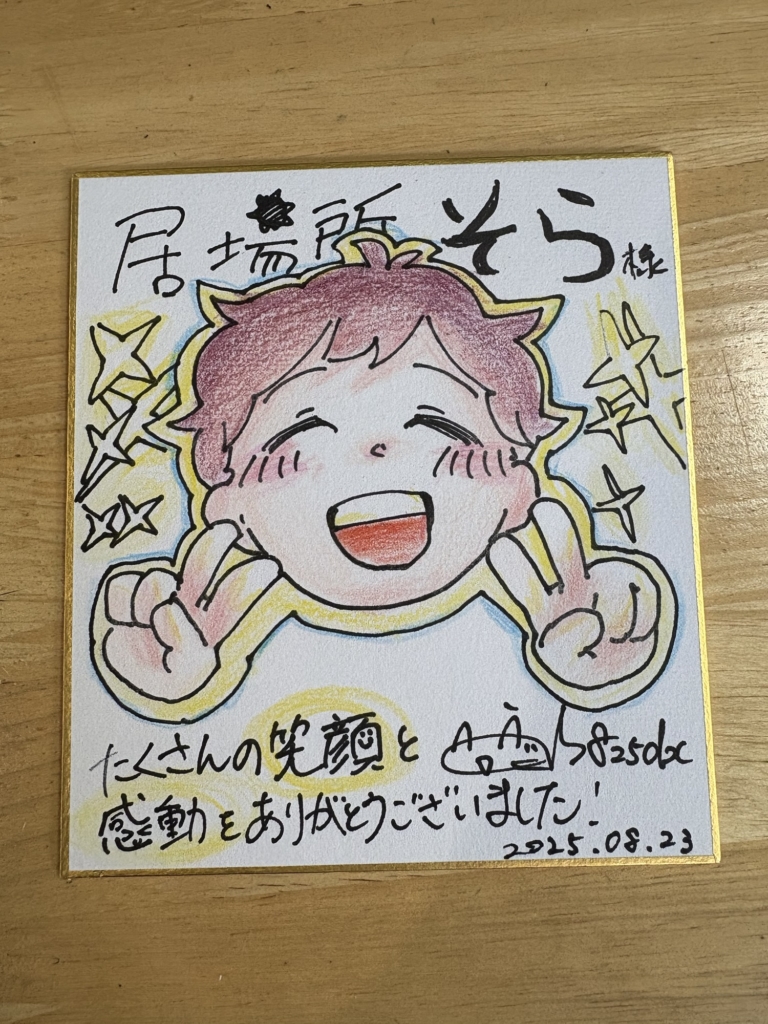 居場所 そら様
たくさんの笑顔と
感動をありがとうございました!
2025.08.23